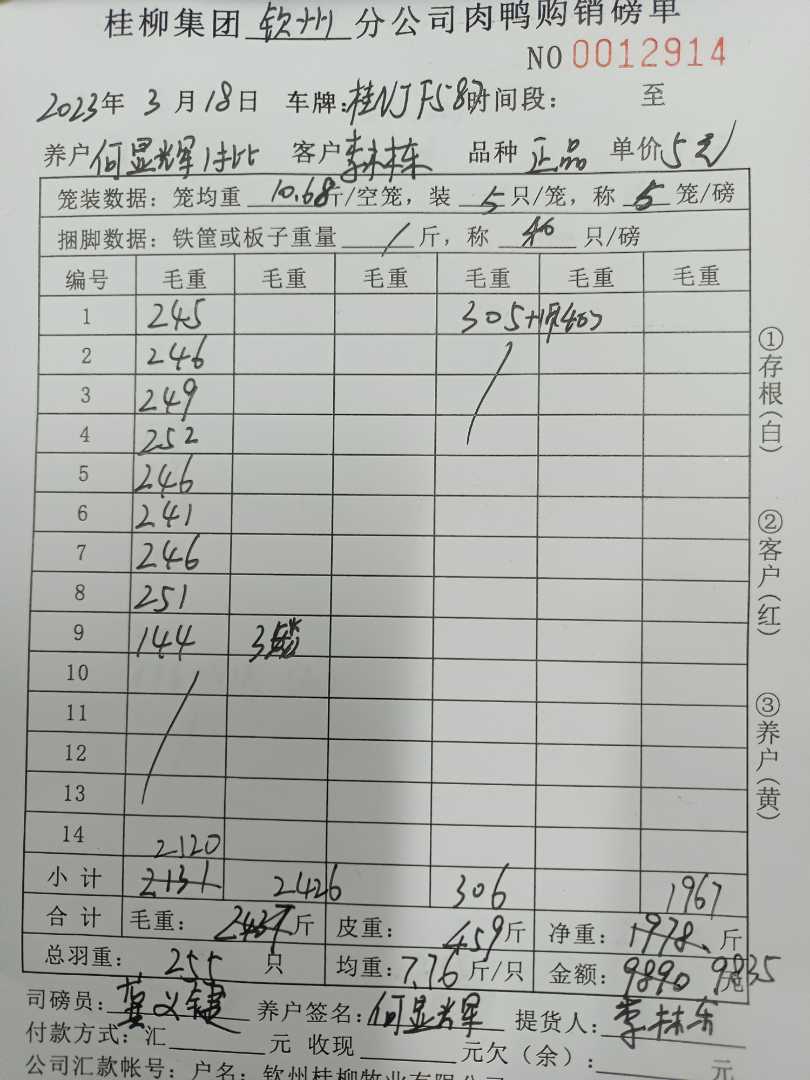 桂柳集团 钦州 分公司肉鸭购销磅单
NO 0012914
2023年 3月18日 车牌：桂NJF587 时间段： 至
养户 何显辉 客户 李林东 品种 正品 单价 5元
笼装数据：笼均重 10.68 斤/空笼，装 5 只/笼，称 5 笼/磅
捆脚数据：铁筐或板子重量 / 斤，称 40 只/磅
编号 毛重 毛重 毛重 毛重 毛重 毛重
1 245 305
2 246
3 249
4 252
5 246
6 241
7 246
8 251
9 144 3
10
11
12
13
14 2120
小计 2131 2426 306 1967
合计 毛重： 2437 斤 皮重： 459 斤 净重： 1978 斤
总羽重： 255 只 均重： 7.76 斤/只 金额： 9890 9835 元
司磅员： 养户签名：何显辉 提货人：李林东
付款方式：汇 元 收现 元欠（余）： 元
公司汇款帐号：户名：钦州桂柳牧业有限公司
①存根（白）
②客户（红）
③养户（黄）